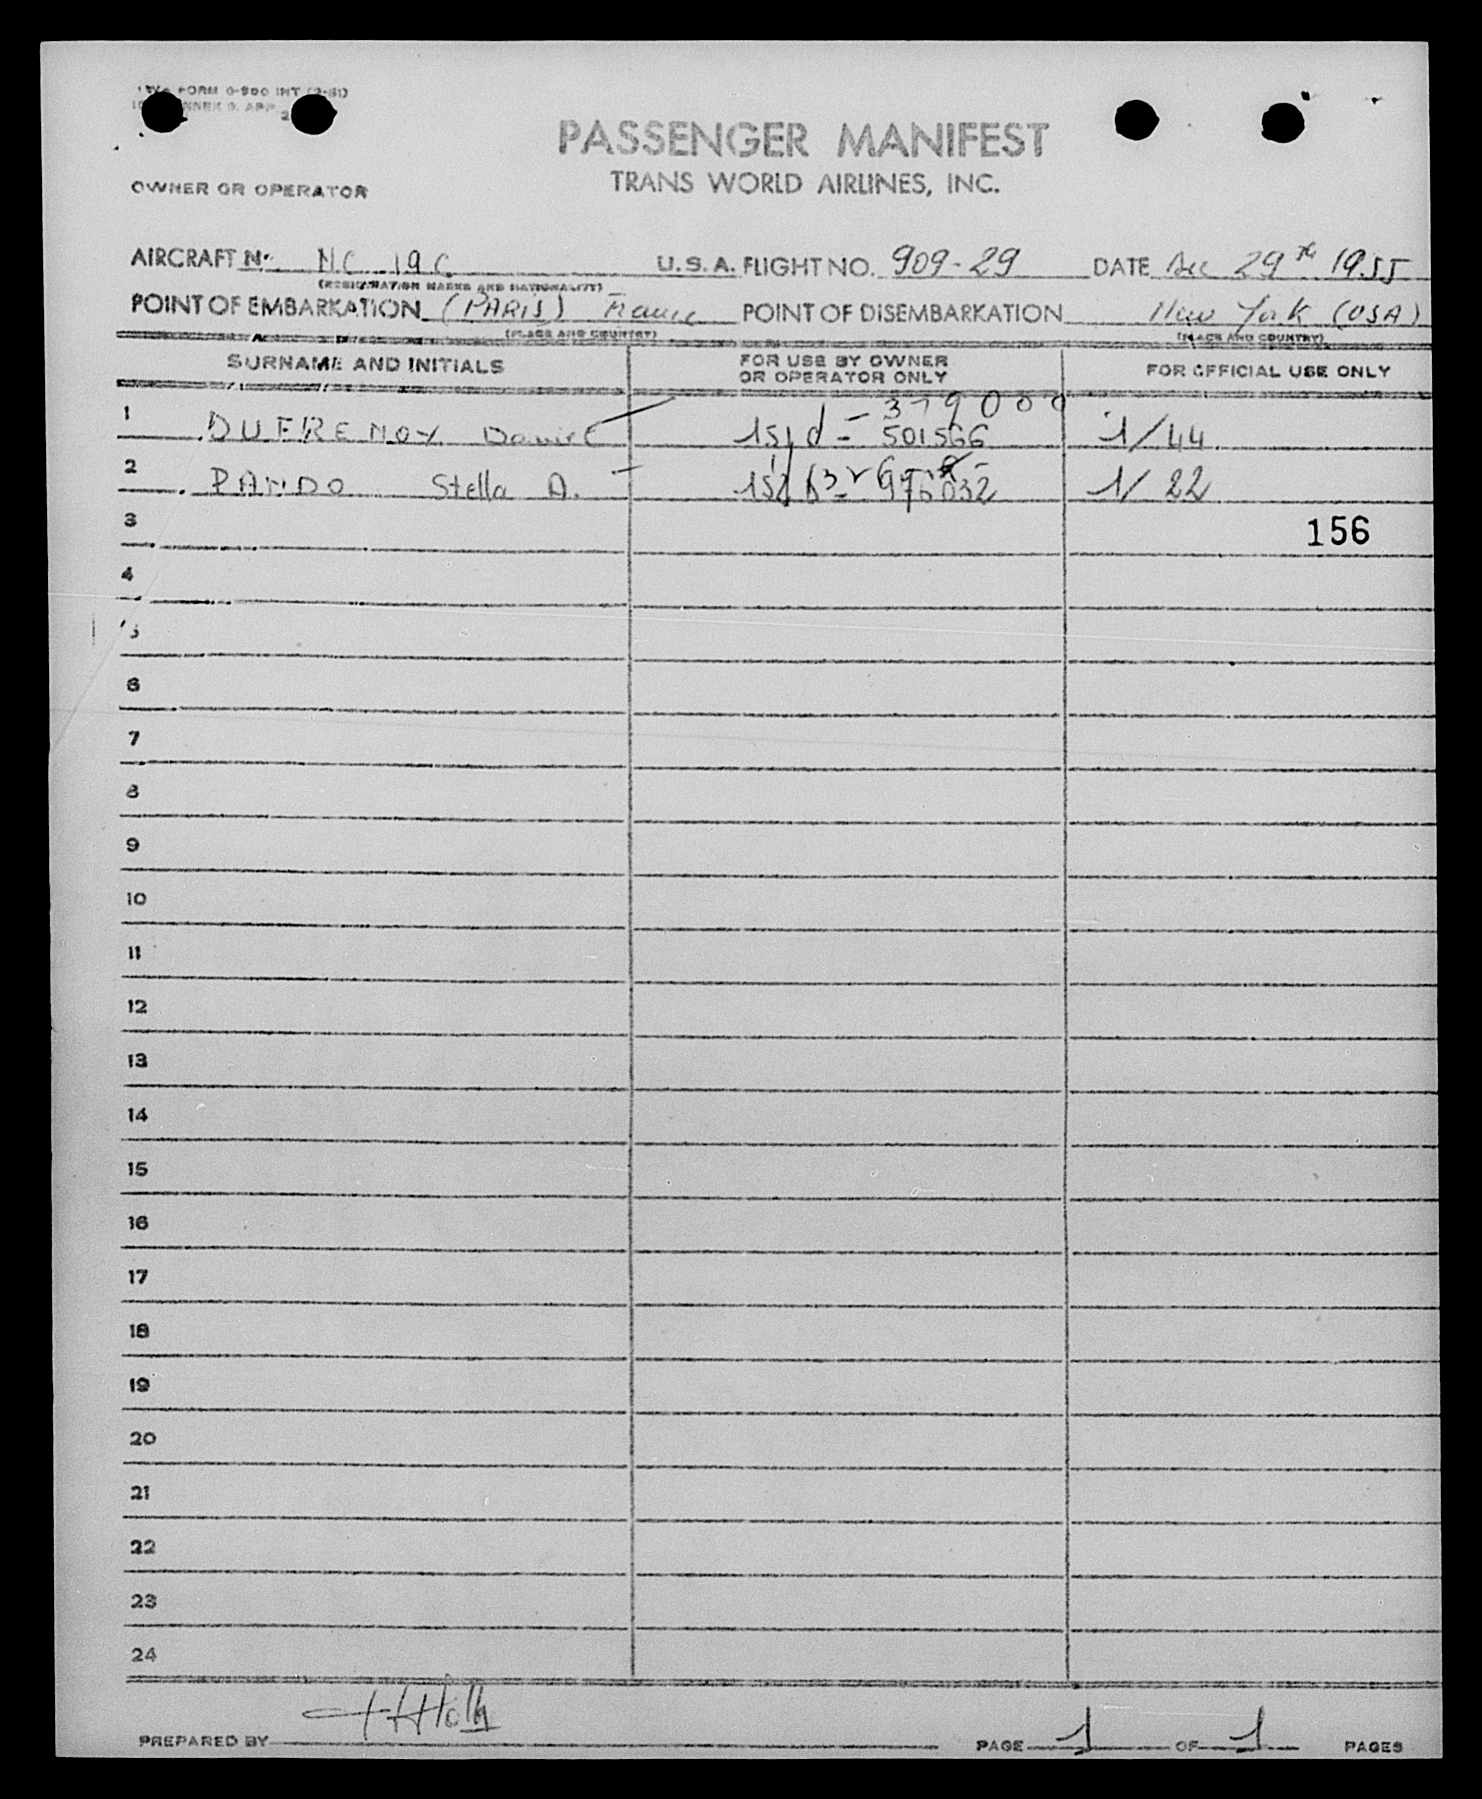 TWA FORM 0-900 INT (2-51)
ANNEX 9. APP. 2
PASSENGER MANIFEST
TRANS WORLD AIRLINES, INC.
OWNER OR OPERATOR
AIRCRAFT No. NC 19C U.S.A. FLIGHT NO. 909-29 DATE Dec 29th 1955
(REGISTRATION MARKS AND NATIONALITY)
POINT OF EMBARKATION (PARIS) France POINT OF DISEMBARKATION New York (USA)
(PLACE AND COUNTRY) (PLACE AND COUNTRY)
SURNAME AND INITIALS FOR USE BY OWNER OR OPERATOR ONLY FOR OFFICIAL USE ONLY
379000
1 DUFRENOY Daniel 501566 1/44
2 PARDO Stella A. 1/22
3 156
4
5
6
7
8
9
10
11
12
13
14
15
16
17
18
19
20
21
22
23
24
PREPARED BY PAGE 1 OF 1 PAGES